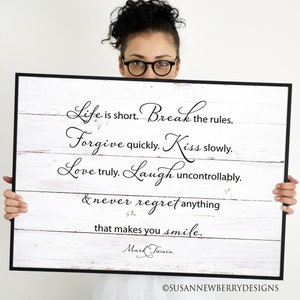 Life is short. Break the rules.
Forgive quickly. Kiss slowly.
Love truly. Laugh uncontrollably.
& never regret anything
that makes you smile.
Mark Twain
©SUSANNEWBERRYDESIGNS